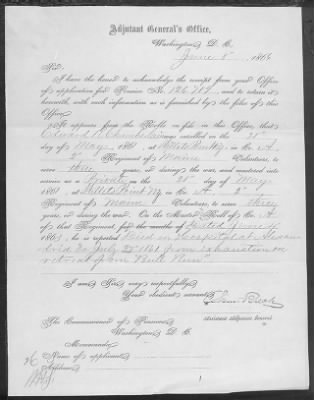 Adjutant General's Office,
Washington, D. C.
June 8, 1866
Sir:
I have the honor to acknowledge the receipt from your Office
of application for Pension No. 126.719, and to return it
herewith, with such information as is furnished by the files of this
Office.
It appears from the Rolls on file in this Office, that
Edward H. Chamberlain was enrolled on the 28"
day of May, 1861, at Willets Point NY, in Co. A
Regiment of Maine Volunteers, to
serve three years, or during the war, and mustered into
service as a Private on the 28" day of May,
1861, at Willets Point NY, in Co. A
Regiment of Maine Volunteers, to serve three
years, or during the war. On the Muster Roll of Co. A
of that Regiment, for the months of dated June
1861, he is reported Died in Hospital at
July 1861 from exhaustion on
retreat from "Bull Run"
I am, Sir, very respectfully,
Your obedient servant,
Assistant Adjutant General
The Commissioner of Pensions,
Washington, D. C.
Memoranda:
Name of applicant,
Address,